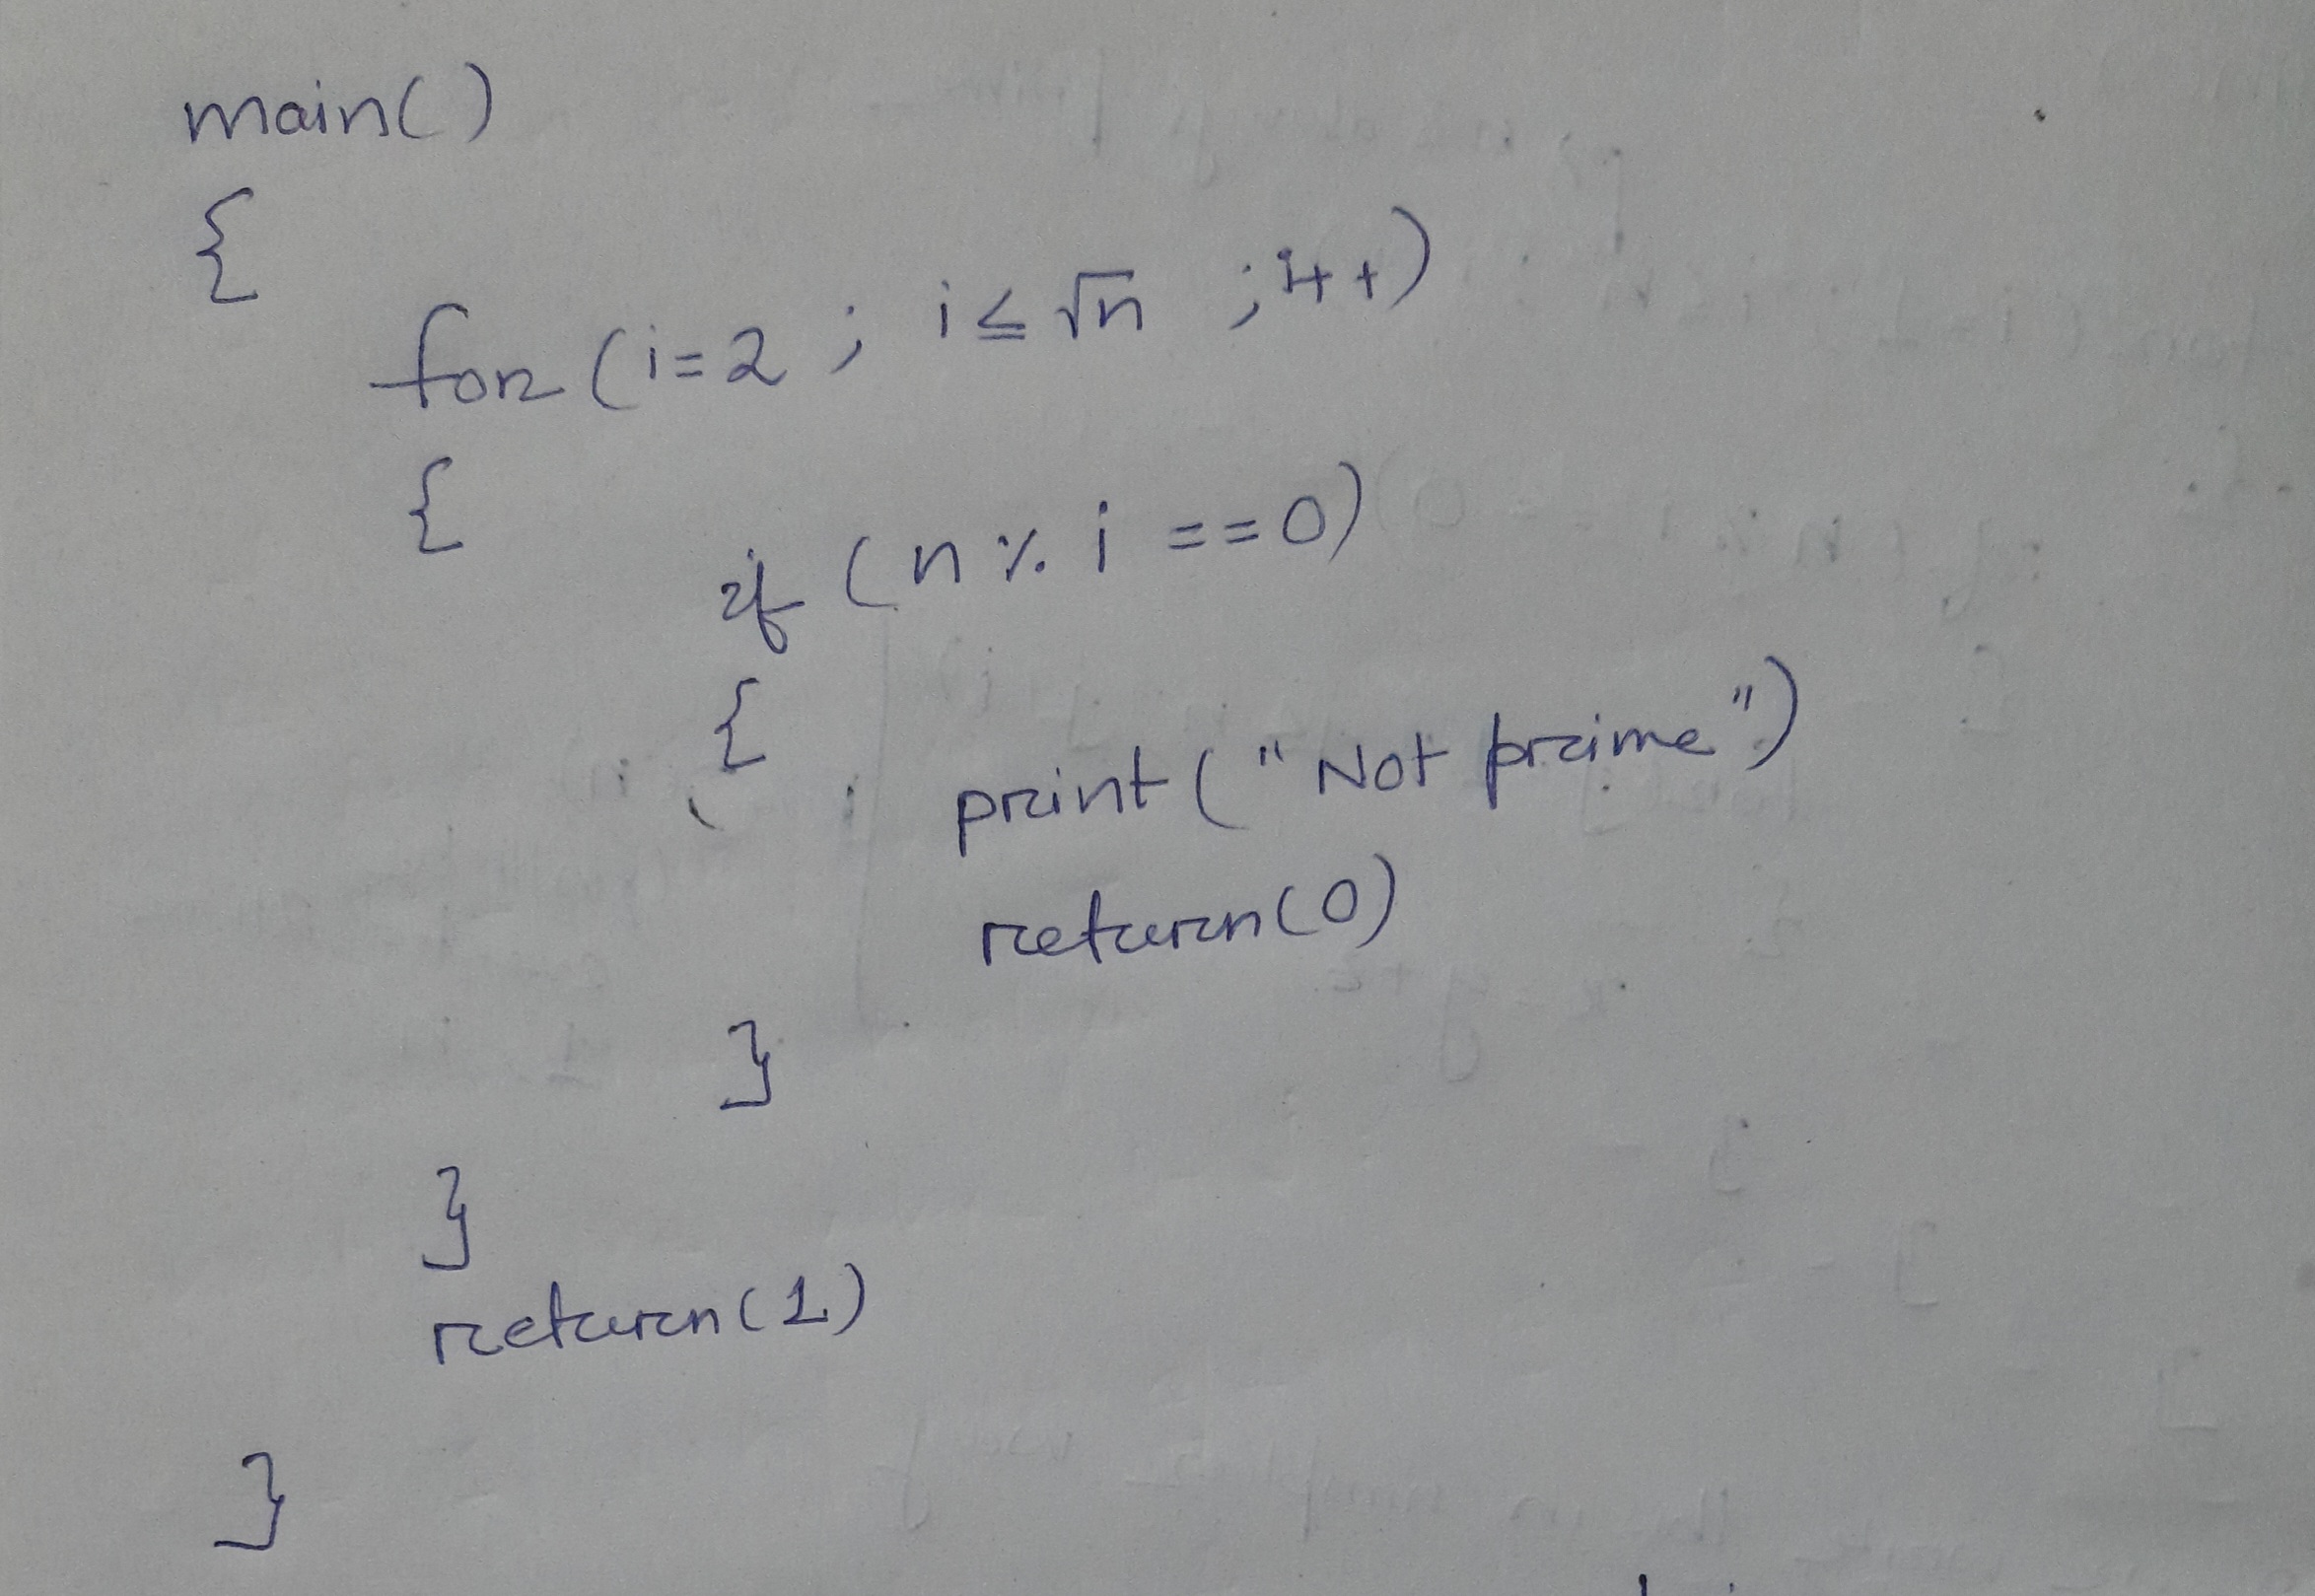 main()
{
for (i=2 ; i≤√n ; i++)
{
if (n % i ==0)
{
print ("Not prime")
return(0)
}
}
return(1)
}